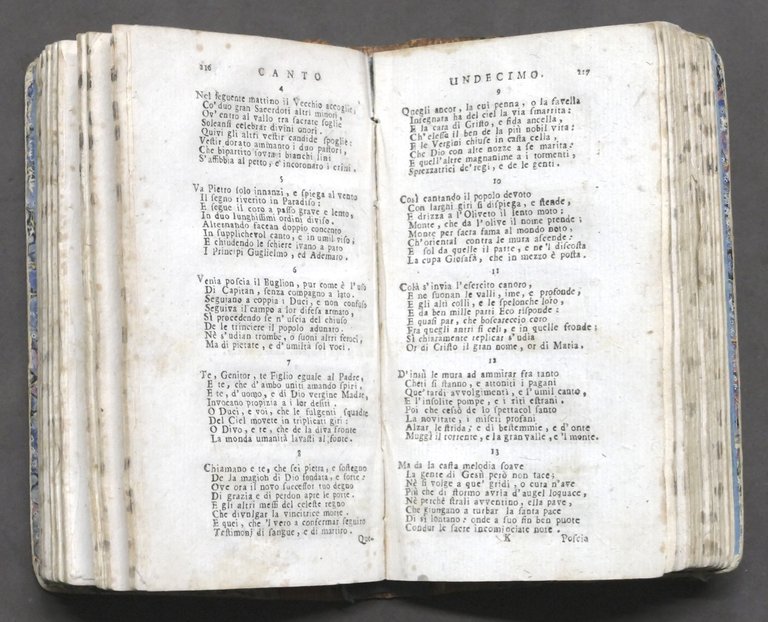 216 CANTO
4
Nel seguente mattino il Vecchio accoglie,
Co' duo gran Sacerdoti altri minori,
Ov'entro al vallo tra sacrate soglie
Soleansi celebrar divini onori.
Quivi gli altri vestir candide spoglie:
Vestir dorato ammanto i duo pastori,
Che bipartito sovra i bianchi lini
S'affibbia al petto, e incoronaro i crini.
5
Va Pietro solo innanzi, e spiega al vento
Il segno riverito in Paradiso:
E segue il coro a passo grave e lento,
In duo lunghissimi ordini diviso.
Alternando facean doppio concento
In supplichevol canto, e in umil viso;
E chiudendo le schiere ivano a paro
I Principi Guglielmo, ed Ademaro.
6
Venia poscia il Buglion, pur come è l'uso
Di Capitan, senza compagno a lato.
Seguiano a coppia i Duci, e non confuso
Seguiva il campo a lor difesa armato,
Sì procedendo se n'uscia del chiuso
De le trinciere il popolo adunato.
Nè s'udian trombe, o suoni altri feroci,
Ma di pietate, e d'umiltà sol voci.
7
Te, Genitor, te Figlio eguale al Padre,
E te, che d'ambo uniti amando spiri,
E te, d'uomo, e di Dio vergine Madre,
Invocano propizia a i lor desiri.
O Duci, e voi, che le fulgenti squadre
Del Ciel movete in triplicati giri:
O Divo, e te, che de la diva fronte
La monda umanità lavasti al fonte.
8
Chiamano e te, che sei pietra, e sostegno
De la magion di Dio fondata, e forte:
Ove ora il novo successor tuo degno
Di grazia e di perdon apre le porte.
E gli altri messi del celeste regno
Che divulgar la vincitrice morte.
E quei, che 'l vero a confermar seguiro
Testimonj di sangue, e di martiro.
Que-
UNDECIMO. 217
9
Quegli ancor, la cui penna, o la favella
Insegnata ha del ciel la via smarrita:
E la cara di Cristo, e fida ancella,
Ch'elesse il ben de la più nobil vita:
E le Vergini chiuse in casta cella,
Che Dio con alte nozze a se marita:
E quell'altre magnanime a i tormenti,
Sprezzatrici de' regi, e de le genti.
10
Così cantando il popolo devoto
Con larghi giri si dispiega, e stende,
E drizza a l'Oliveto il lento moto:
Monte, che da l'olive il nome prende;
Monte per sacra fama al mondo noto,
Ch'oriental contra le mura ascende:
E sol da quelle il parte, e ne'l discosta
La cupa Giosafà, che in mezzo è posta.
11
Colà s'invia l'esercito canoro,
E ne suonan le valli, ime, e profonde,
E gli alti colli, e le spelonche loro,
E da ben mille parti Eco risponde:
E quasi par, che boscareccio coro
Fra quegli antri si celi, e in quelle fronde:
Sì chiaramente replicar s'udia
Or di Cristo il gran nome, or di Maria.
12
D'insù le mura ad ammirar fra tanto
Cheti si stanno, e attoniti i pagani
Que' tardi avvolgimenti, e l'umil canto,
E l'insolite pompe, e i riti estrani.
Poi che cessò de lo spettacol santo
La novitate, i miseri profani
Alzar le strida; e di bestemmie, e d'onte
Muggì il torrente, e la gran valle, e 'l monte.
13
Ma da la casta melodia soave
La gente di Gesù però non tace;
Nè si volge a que' gridi, o cura n'ave
Più che di stormo avria d'augel loquace,
Nè perchè strali avventino, ella pave,
Che giungano a turbar la santa pace
Di sì lontano: onde a suo fin ben puote
Condur le sacre incominciate note.
K Poscia